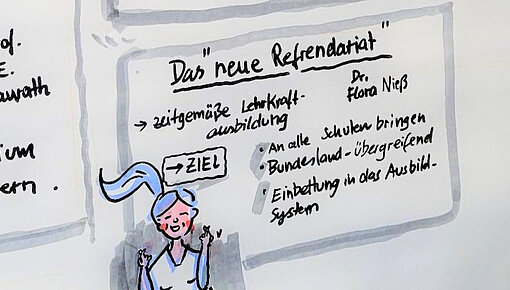 of.
E.
awrath
ium
ern.
Das "neue Refrendariat"
Dr.
Flora Nieß
→ zeitgemäße Lehrkraft-
ausbildung
→ ZIEL
• An alle Schulen bringen
• Bundesland-übergreifend
• Einbettung in das Ausbild-
System